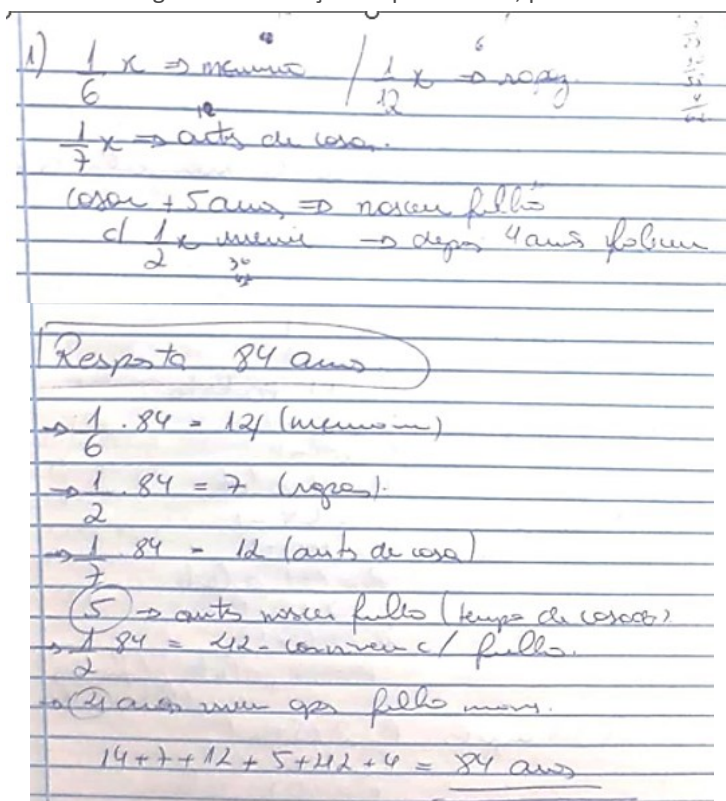 1) 1/6 x ⇒ menino / 1/12 x ⇒ rapaz
1/7 x ⇒ antes de casar.
casar + 5 anos ⇒ nasceu filho
c/ 1/2 x → depois 4 anos faleceu
Resposta 84 anos
→ 1/6 . 84 = 14 (menino)
→ 1/2 . 84 = 7 (rapaz).
→ 1/7 84 = 12 (antes de casa)
5 → antes nascer filho (tempo de casado)
→ 1/2 84 = 42 - conviveu c/ filho.
→ 4 anos filho
14 + 7 + 12 + 5 + 42 + 4 = 84 anos